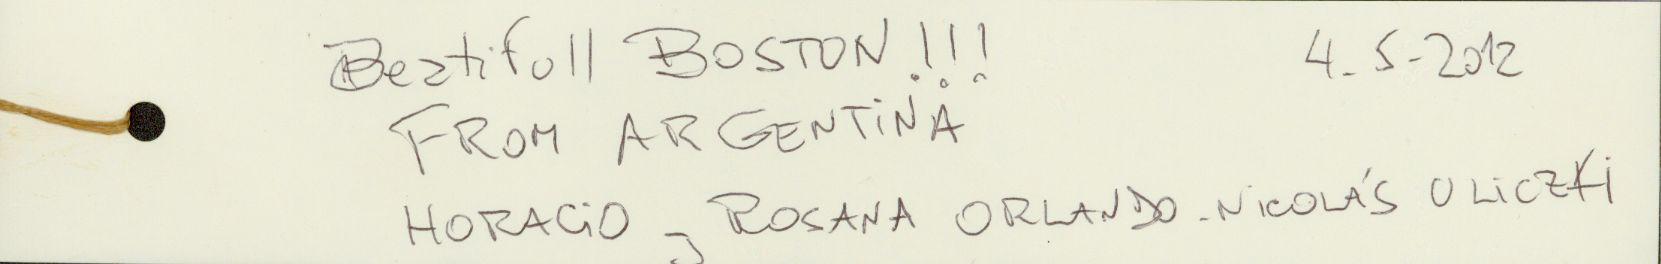 Beatifull BOSTON!!! 4-5-2012
FROM ARGENTINA
HORACIO, ROSANA ORLANDO-NICOLÁS ULICZKI